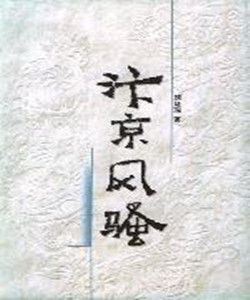 汴京风骚
著